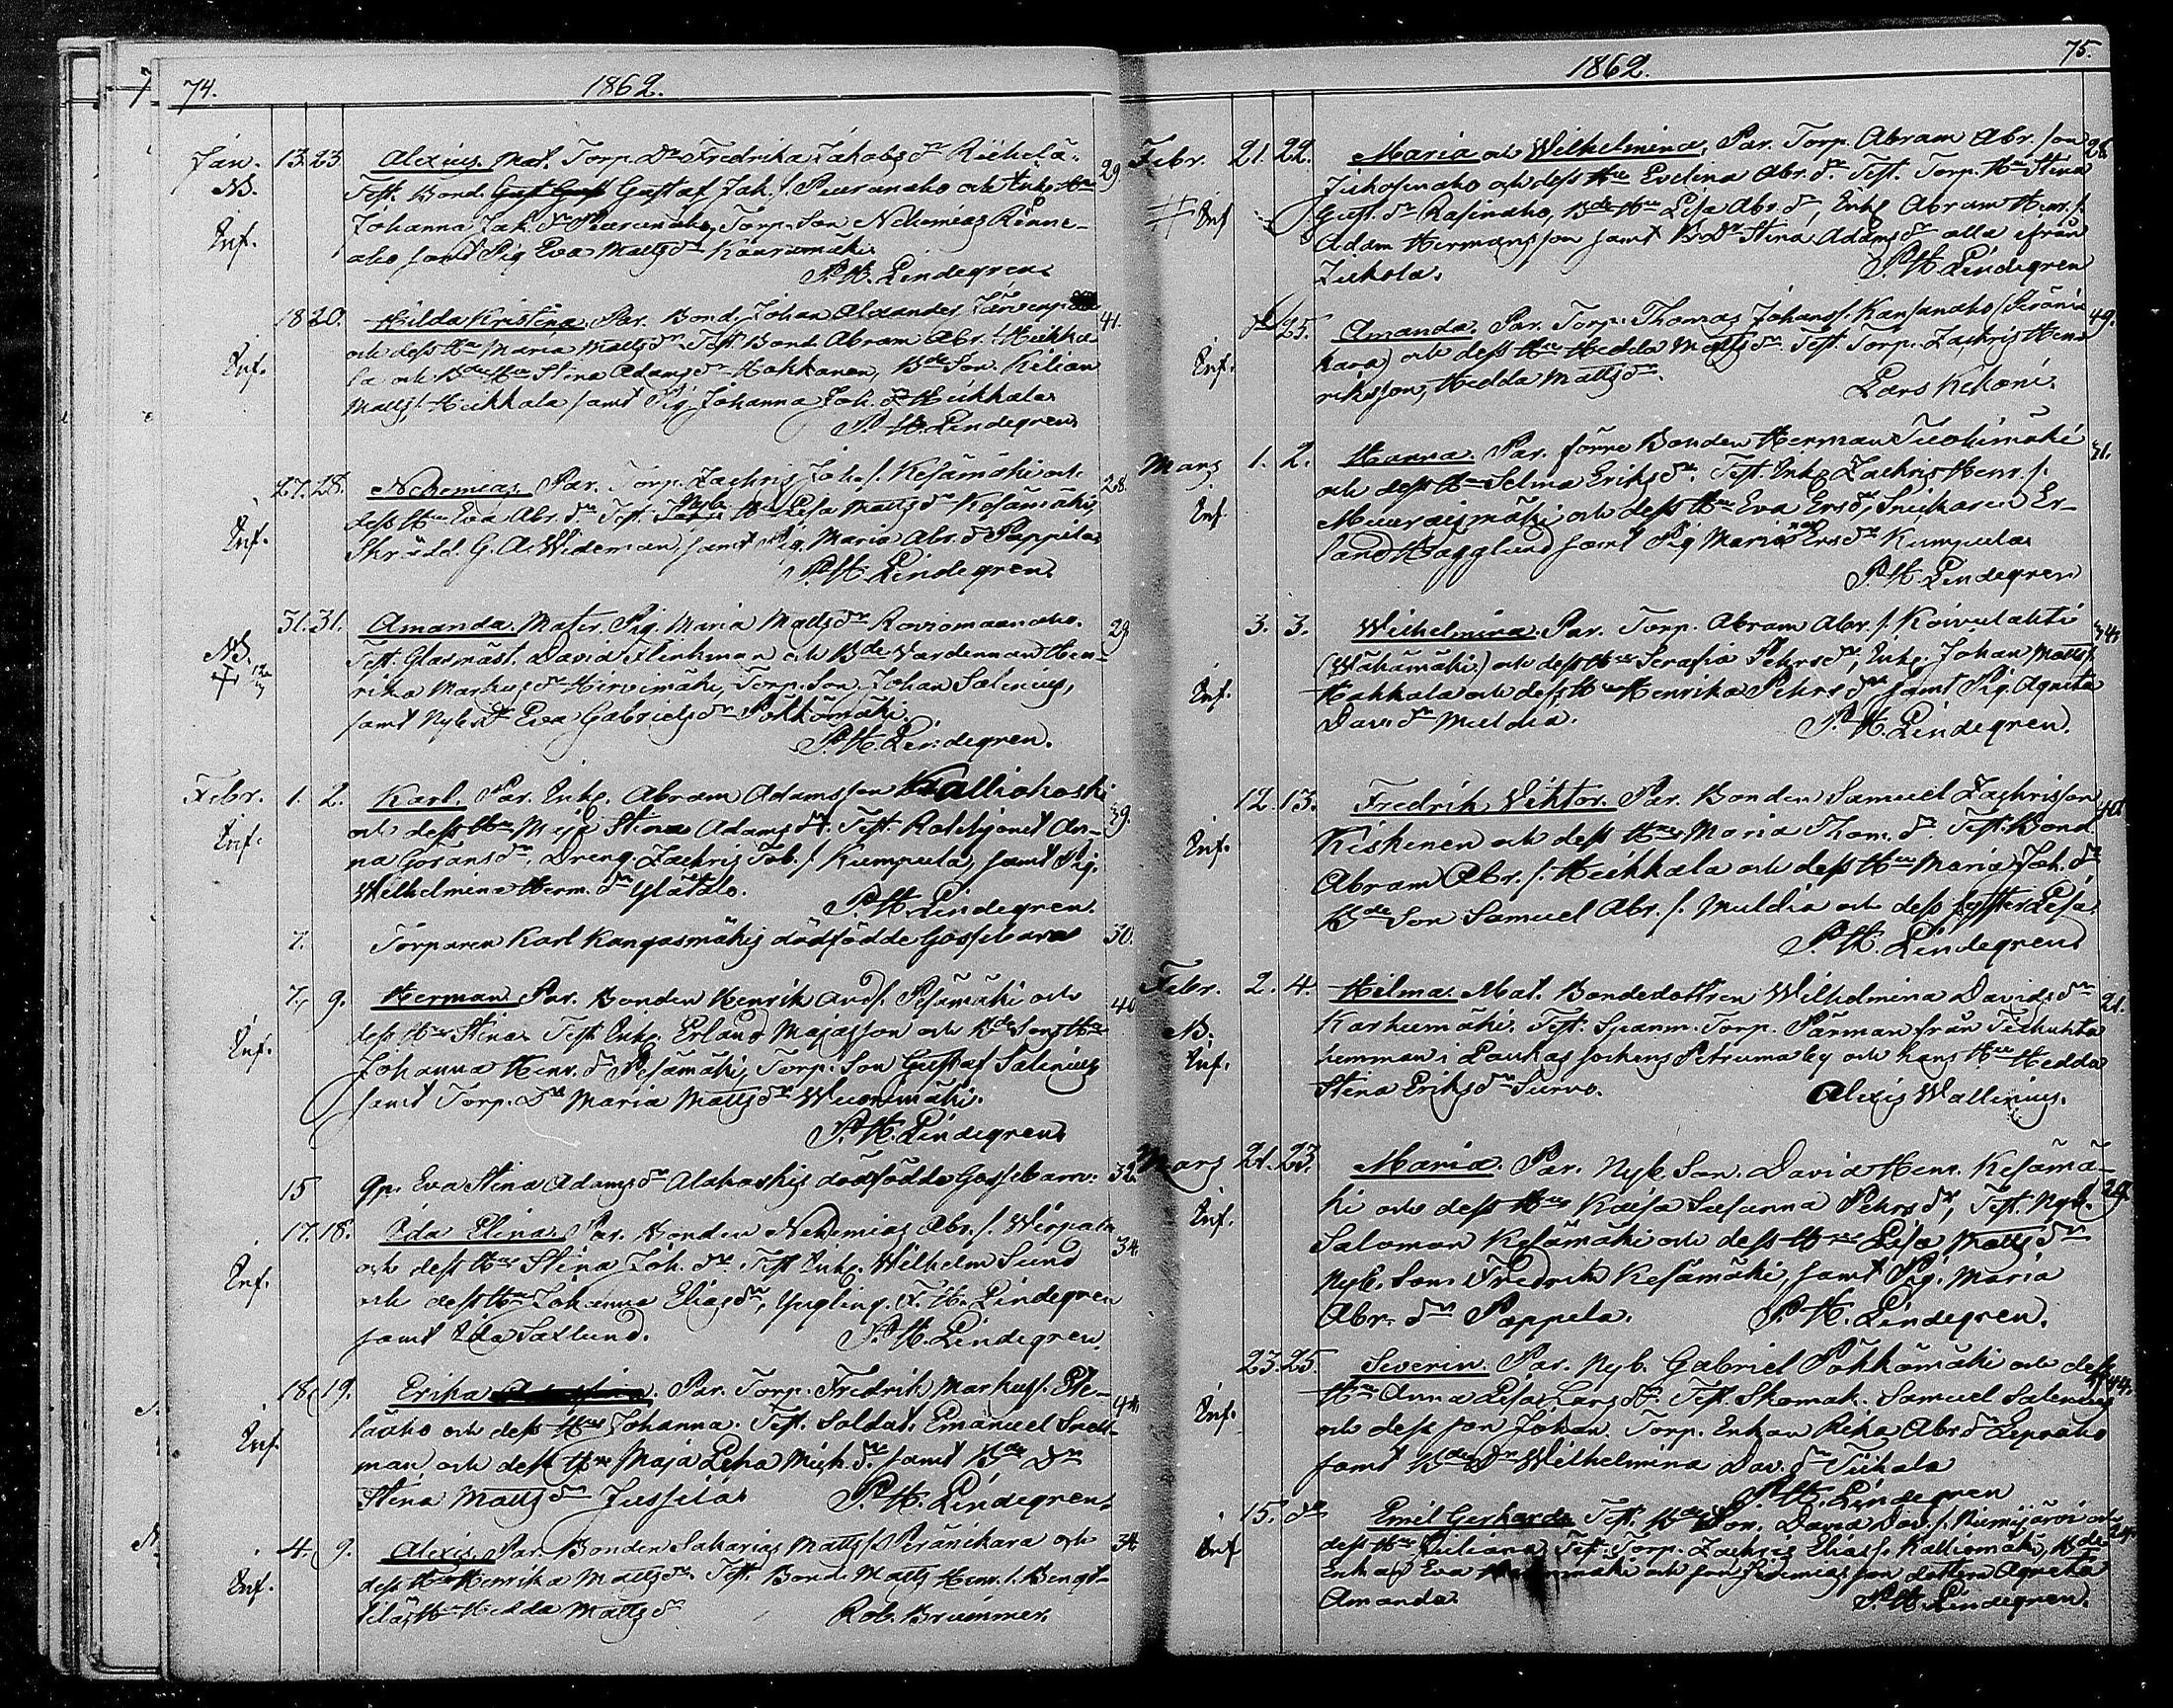 74. 1862.
Jan. 13. 23. Alexius. Mat. Torp. Dr Fredrika Jakobsdr Riihelä. 29
NB. Test. Bond. Gust Gust Gustaf Jak. s. Puuranaho och Enkl. Hu
Inf. Johanna Jak. dr Puuranaho, Torp. Son Nehemias Rönne-
aho samt Pig. Eva Mattsdr Kauramäki.
P. H. Lindegren.
18 20. Hilda Kristina. Par. Bond. Johan Alexander Järvenpää 41.
och dess Hu Maria Mattsdr. Test. Bond. Abram Abr. s. Heikka-
Inf. la och Bde Hu Stina Adamsdr Hokkanen, Bde Son. Kilian
Matts. s. Heikkala samt Pig. Johanna Joh. dr Heikkala.
P. H. Lindegren.
27. 28. Nehemias. Par. Torp. Zachris Joh. s. Kesämäki och 28.
dess Hu Eva Abr. dr. Test. Nyb. Hu Lisa Mattsdr Kesämäki,
Inf. Skrädd. G. A. Wideman, samt Pig. Maria Abr. dr Pappila.
P. H. Lindegren.
31. 31. Amanda. Mater. Pig. Maria Mattsdr Roviomaanaho. 29
NB. Test. Glasmäst. David Flinkman och Bde Värdinnan Hen-
rika Markusdr Hirvimäki, Torp. Son Johan Salenius,
samt Nyb. Dr Eva Gabrielsdr Pökkömäki.
P. H. Lindegren.
Febr. 1. 2. Karl. Par. Enkl. Abram Adamsson Kalliokoski
Inf. och dess Hu Maja Stina Adamsdr. Test. Rotehjonet An- 39.
na Göransdr, Dreng. Zachris Tob. s. Kumpula, samt Pig.
Wilhelmina Herm. dr Ylätalo.
P. H. Lindegren.
7. Torparen Karl Kangasmäkis dödfödde Gossebarn 30.
7. 9. Herman. Par. Bonden Henrik And s. Pesämäki och 40
dess Hu Stina. Test. Enkl. Erland Majasson och Bde Sons Hu
Inf. Johanna Henr. dr Pesämäki, Torp. Son Gustaf Salenius
samt Torp. Dr Maria Mattsdr Wuorimäki.
P. H. Lindegren.
15 Qp. Eva Stina Adamsdr Alakoskis dödfödde Gossebarn. 32.
17. 18. Ida Elina. Par. Bonden Nehemias Abr. s. Wirpala 34.
och dess Hu Stina Joh. dr. Test. Enkl. Wilhelm Sund
Inf. och dess Hu Johanna Eliasdr, Yngling. F. H. Lindegren
samt Ida Saxlund. P. H. Lindegren.
18. 19. Erika. Par. Torp. Fredrik Markus s. Ete- 44
läaho och dess Hu Johanna. Test. Soldat. Emanuel Snell-
Inf. man och dess Hu Maja Lena Mich. dr. samt Bde Dr
Stina Mattsdr Jussila. P. H. Lindegren.
4. 9. Alexis. Par. Bonden Sakarias Matts s. Peränkara och 34.
Inf. dess Hu Henrika Mattsdr. Test. Bond. Matts Henr. s. Bengt-
tilä, Hu Hedda Mattsdr Rob. Brummer.
1862. 75.
Febr. 21. 22. Maria och Wilhelmina. Par. Torp. Abram Abr. son 28
Juhosinaho och dess Hu Evelina Abr. dr. Test. Torp. Hu Stina
Inf Gust. dr Rasinaho, Bde Hu Lisa Abr. dr, Enkl. Abram Henr. s.
Adam Hermansson samt B. Dr Stina Adamsdr alla ifrån
Juhola. P. H. Lindegren
25. Amanda. Par. Torp. Thomas Johans s. Kansanaho (Perän- 49.
Inf. kara) och dess Hu Hedda Mattsdr. Test. Torp. Zachris Hen-
riksson, Hedda Mattsdr. Lars Kiljoni.
Mars 1. 2. Hanna. Par. förre Bonden Herman Tuohimäki 31.
och dess Hu Selma Eriksdr. Test. Enkl. Zachris Henr. s.
Inf. Muuraismäki, och dess Hu Eva Ersdr, Snickaren Er-
land Hägglund samt Pig Maria Ersdr Kumpula.
P. H. Lindegren
3. 3. Wilhelmina. Par. Torp. Abram Abr. s. Koivulahti 34.
(Wähämäki) och dess Hu Serafia Pehrsdr, Enkl. Johan Matts s.
Inf. Hakkala och dess Hu Henrika Pehrsdr samt Pig. Agneta
Dav. dr Muldia. P. H. Lindegren.
12. 13. Fredrik Viktor. Par. Bonden Samuel Zachrisson 40.
Inf. Kiskinen och dess Hu Maria Thom. dr. Test. Bond.
Abram Abr. s. Heikkala och dess Hu Maria Joh. dr
Bde Son Samuel Abr. s. Muldia och dess syster Lisa.
P. H. Lindegren.
Febr. 2. 4. Hilma. Mat. Bondedottren Wilhelmina Davidsdr 21.
NB. Karhumäki. Test. Spanm. Torp. Pärman från Tiihuhta
Inf. hemman i Laukas sockens Petruma by och hans Hu Hedda
Stina Eriksdr Survo. Alexis Wallenius.
Mars 21. 23. Maria. Par. Nyb. Son. David Henr. Kesämä- 29.
Inf. ki och dess Hu Kaisa Susanna Pehrsdr, Test. Nyb.
Salomon Kesämäki och dess Hu Lisa Mattsdr
Nyb. Son. Fredrik Kesämäki, samt Pig. Maria
Abr. dr Pappila. P. H. Lindegren.
23. 25. Severin. Par. Nyb. Gabriel Pökkömäki och dess 44.
Hu Anna Lisa Larsdr. Test. Skomak. Samuel Salenius
Inf. och dess son Johan. Torp. Enkan Rika Abrdr Lepoaho
samt Bde Dr Wilhelmina Dav. dr Tiihala
P. H. Lindegren
15. dr Emil Gerhard. Test. Bde Son. David Dav. s. Niemijärvi och
Inf dess Hu Juliana. Test. Torp. Zachris Elias s. Kalliomäki, Bde
Enkan Eva och son Nehemias samt dottern Agneta
Amanda. P. H. Lindegren.